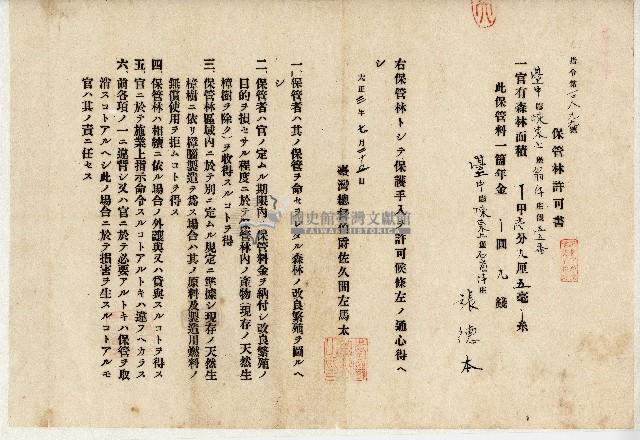 指令第
保管林許可書
臺中廳揀東上堡
一官有森林面積
甲 分九厘五毫 糸
此保管料一箇年金
圓九錢
臺中廳揀東上堡
張德本
右保管林トシテ保護手入
許可候條左ノ通心得ヘ
シ
大正三年七月二十五日
臺灣總
佐久間左馬太
一、保管者ハ其ノ保管ヲ命セラレタル森林ノ改良繁殖ヲ圖ルヘ
シ
二、保管者ハ官ノ定ムル期限內ニ保管料金ヲ納付シ改良繁殖ノ
目的ヲ損セサル程度ニ於テ
林內ノ產物(現存ノ天然生
樟樹ヲ除ク)ヲ收得スルコトヲ得
三、保管林區域內ニ於テ別ニ定ムル規定ニ準據シ現存ノ天然生
樟樹ニ依リ樟腦製造ヲ爲ス場合ハ其ノ原料及製造用燃料ノ
無償使用ヲ拒ムコトヲ得ス
四、保管林ハ相續ニ依ル場合ノ外讓與又ハ貸與スルコトヲ得ス
五、官ニ於テ施業上指示命令スルコトアルトキハ違フヘカラス
六、前各項ノ一ニ違背シ又ハ官ニ於テ必要アルトキハ保管ヲ取
消スコトアルヘシ此ノ場合ニ於テ損害ヲ生スルコトアルモ
官ハ其ノ責ニ任セス
國史館臺灣文獻館
TAIWAN HISTORICA